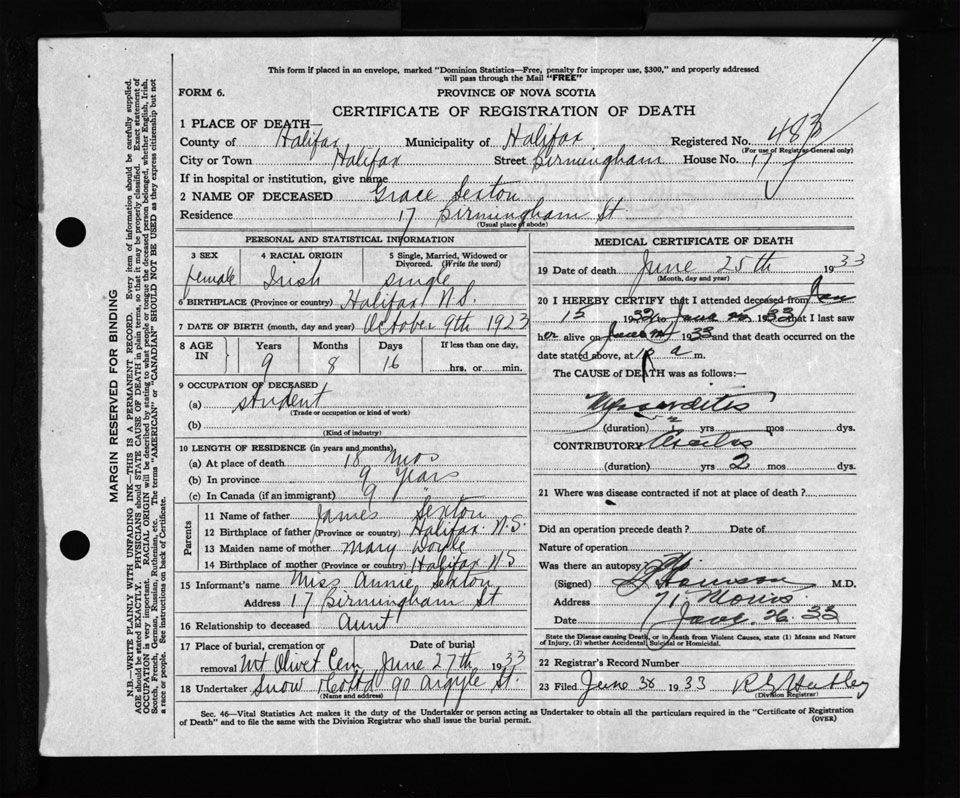 This form if placed in an envelope, marked "Dominion Statistics—Free, penalty for improper use, $300," and properly addressed
will pass through the Mail "FREE"
FORM 6.
PROVINCE OF NOVA SCOTIA
CERTIFICATE OF REGISTRATION OF DEATH
1 PLACE OF DEATH—
County of Halifax Municipality of Halifax Registered No. 483
(For use of Registrar General only)
City or Town Halifax Street Birmingham House No. 17
If in hospital or institution, give name
2 NAME OF DECEASED Grace Sexton
Residence 17 Birmingham St
(Usual place of abode)
PERSONAL AND STATISTICAL INFORMATION
3 SEX 4 RACIAL ORIGIN 5 Single, Married, Widowed or Divorced. (Write the word)
female Irish single
6 BIRTHPLACE (Province or country) Halifax N.S.
7 DATE OF BIRTH (month, day and year) October 9th 1923
8 AGE IN Years Months Days If less than one day,
9 8 16 hrs. or min.
9 OCCUPATION OF DECEASED
(a) student
(Trade or occupation or kind of work)
(b)
(Kind of industry)
10 LENGTH OF RESIDENCE (in years and months)
(a) At place of death 18 mos
(b) In province 9 years
(c) In Canada (if an immigrant) 9 "
Parents
11 Name of father James Sexton
12 Birthplace of father (Province or country) Halifax N.S.
13 Maiden name of mother Mary Doyle
14 Birthplace of mother (Province or country) Halifax N S
15 Informant's name Miss Annie Sexton
Address 17 Birmingham St
16 Relationship to deceased Aunt
17 Place of burial, cremation or removal Date of burial
Mt Olivet Cem June 27th 1933
18 Undertaker Snow 90 Argyle St.
(Name and address)
MEDICAL CERTIFICATE OF DEATH
19 Date of death June 25th 1933
(Month, day and year)
20 I HEREBY CERTIFY that I attended deceased from
15 1932 to June 1933 that I last saw
her alive on June 1933 and that death occurred on the
date stated above, at a m.
The CAUSE of DEATH was as follows:—
Myocarditis
(duration) yrs mos dys.
CONTRIBUTORY
(duration) yrs 2 mos dys.
21 Where was disease contracted if not at place of death?
Did an operation precede death? Date of
Nature of operation
Was there an autopsy? No
(Signed) M.D.
Address 71 Morris
Date 26. 33
State the Disease causing Death, or in death from Violent Causes, state (1) Means and Nature
of Injury, (2) whether Accidental, Suicidal or Homicidal.
22 Registrar's Record Number
23 Filed June 30 1933
(Division Registrar)
Sec. 46—Vital Statistics Act makes it the duty of the Undertaker or person acting as Undertaker to obtain all the particulars required in the "Certificate of Registration
of Death" and to file the same with the Division Registrar who shall issue the burial permit.
(OVER)
MARGIN RESERVED FOR BINDING
N.B.—WRITE PLAINLY WITH UNFADING INK—THIS IS A PERMANENT RECORD. Every item of information should be carefully supplied.
AGE should be stated EXACTLY. PHYSICIANS should STATE CAUSE OF DEATH in plain terms, so that it may be properly classified. Exact statement of
OCCUPATION is very important. RACIAL ORIGIN will be described by stating to what people or tongue the deceased person belonged, whether English, Irish,
Scotch, French, German, Russian, Ruthenian, etc. The terms "AMERICAN" or "CANADIAN" SHOULD NOT BE USED as they express citizenship but not
a race or people. See instructions on back of Certificate.